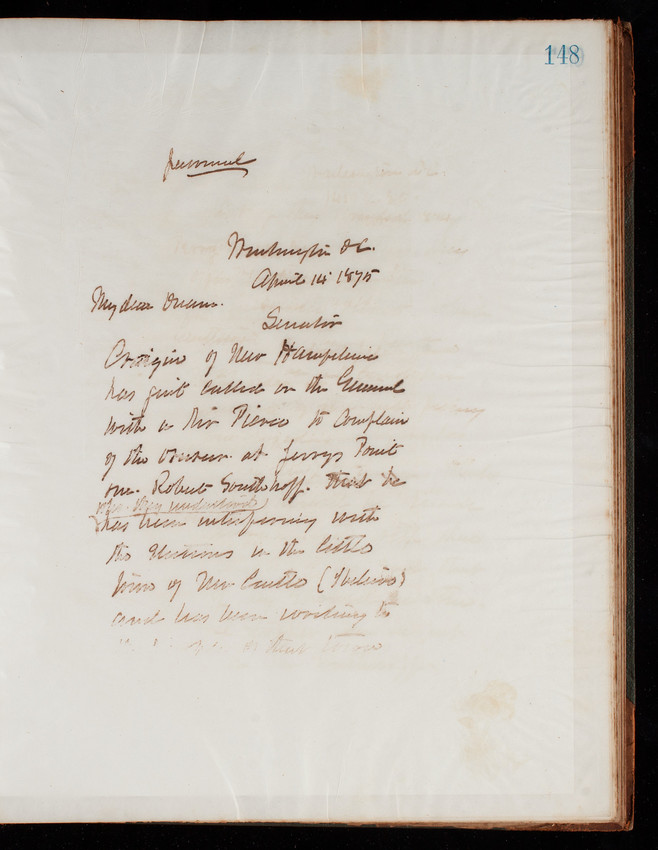 148
Personal
Washington DC.
April 14 1875
My dear
Senator
Cragin of New Hampshire
has just called on the General
with a Mr Pierce to complain
of the overseer at Jerrys Point
one Robert South hoff. that he
they understand
has been interfering with
the elections in the little
town of New Castle (I believe)
and has been working to
of the at that town